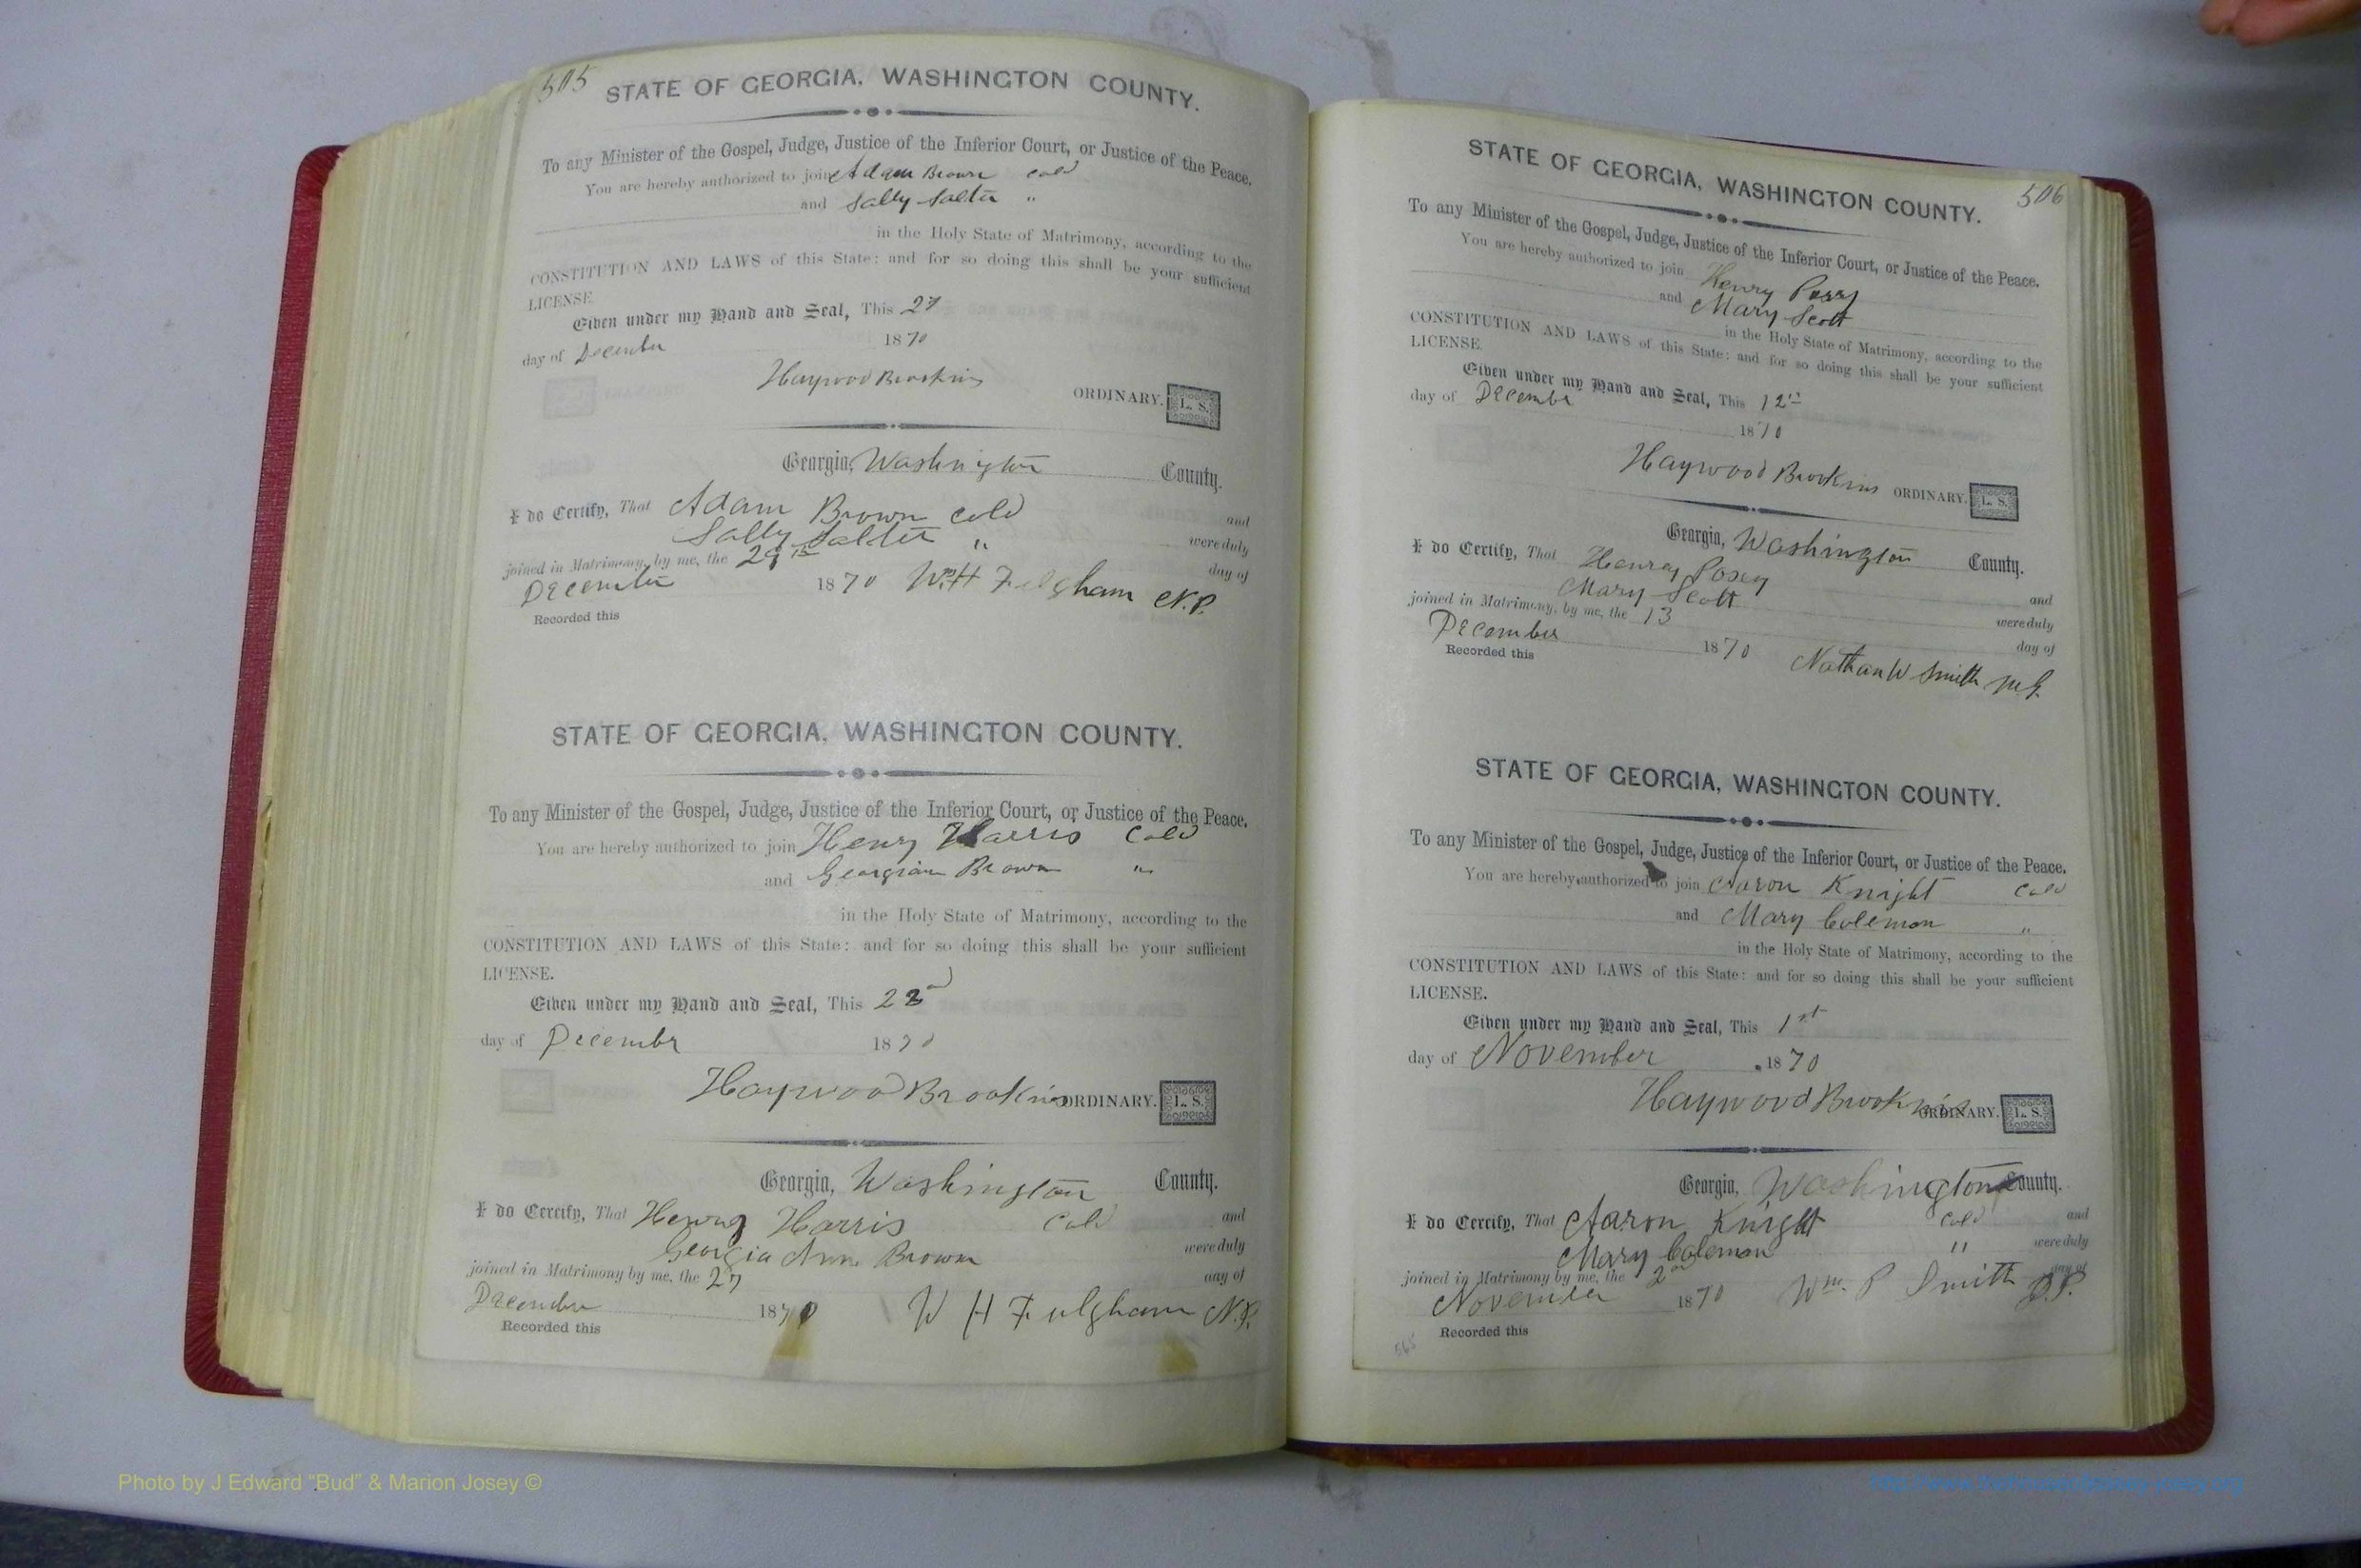 505
STATE OF GEORGIA, WASHINGTON COUNTY.
To any Minister of the Gospel, Judge, Justice of the Inferior Court, or Justice of the Peace.
You are hereby authorized to join Adam Brown cold
and Sally Salter "
in the Holy State of Matrimony, according to the
CONSTITUTION AND LAWS of this State: and for so doing this shall be your sufficient
LICENSE.
Given under my Hand and Seal, This 27
day of December 1870
Haywood Brookins ORDINARY. L. S.
Georgia, Washington County.
I do Certify, That Adam Brown cold and
Sally Salter " were duly
joined in Matrimony, by me, the 29th day of
December 1870 Wm H Fulgham N.P.
Recorded this
STATE OF GEORGIA, WASHINGTON COUNTY.
To any Minister of the Gospel, Judge, Justice of the Inferior Court, or Justice of the Peace.
You are hereby authorized to join Henry Harris Cold
and Georgian Brown "
in the Holy State of Matrimony, according to the
CONSTITUTION AND LAWS of this State: and for so doing this shall be your sufficient
LICENSE.
Given under my Hand and Seal, This
day of Decembr 1870
Haywood Brookins ORDINARY. L. S.
Georgia, Washington County.
I do Certify, That Henry Harris Cold and
Georgia Ann Brown were duly
joined in Matrimony by me, the 27 day of
December 1870 W H Fulgham N.P.
Recorded this
506
STATE OF GEORGIA, WASHINGTON COUNTY.
To any Minister of the Gospel, Judge, Justice of the Inferior Court, or Justice of the Peace.
You are hereby authorized to join Henry Posey
and Mary Scott
in the Holy State of Matrimony, according to the
CONSTITUTION AND LAWS of this State: and for so doing this shall be your sufficient
LICENSE.
Given under my Hand and Seal, This 12th
day of Decembr
1870
Haywood Brookins ORDINARY. L. S.
Georgia, Washington County.
I do Certify, That Henry Posey and
Mary Scott were duly
joined in Matrimony, by me, the 13 day of
December 1870 Nathan W Smith M.G.
Recorded this
STATE OF GEORGIA, WASHINGTON COUNTY.
To any Minister of the Gospel, Judge, Justice of the Inferior Court, or Justice of the Peace.
You are hereby authorized to join Aaron Knight Cold
and Mary Coleman "
in the Holy State of Matrimony, according to the
CONSTITUTION AND LAWS of this State: and for so doing this shall be your sufficient
LICENSE.
Given under my Hand and Seal, This 1st
day of November 1870
Haywood Brookins ORDINARY. L. S.
Georgia, Washington County.
I do Certify, That Aaron Knight Cold and
Mary Coleman " were duly
joined in Matrimony by me, the 2nd day of
November 1870 Wm. P Smith J.P.
Recorded this
565
Photo by J Edward "Bud" & Marion Josey ©